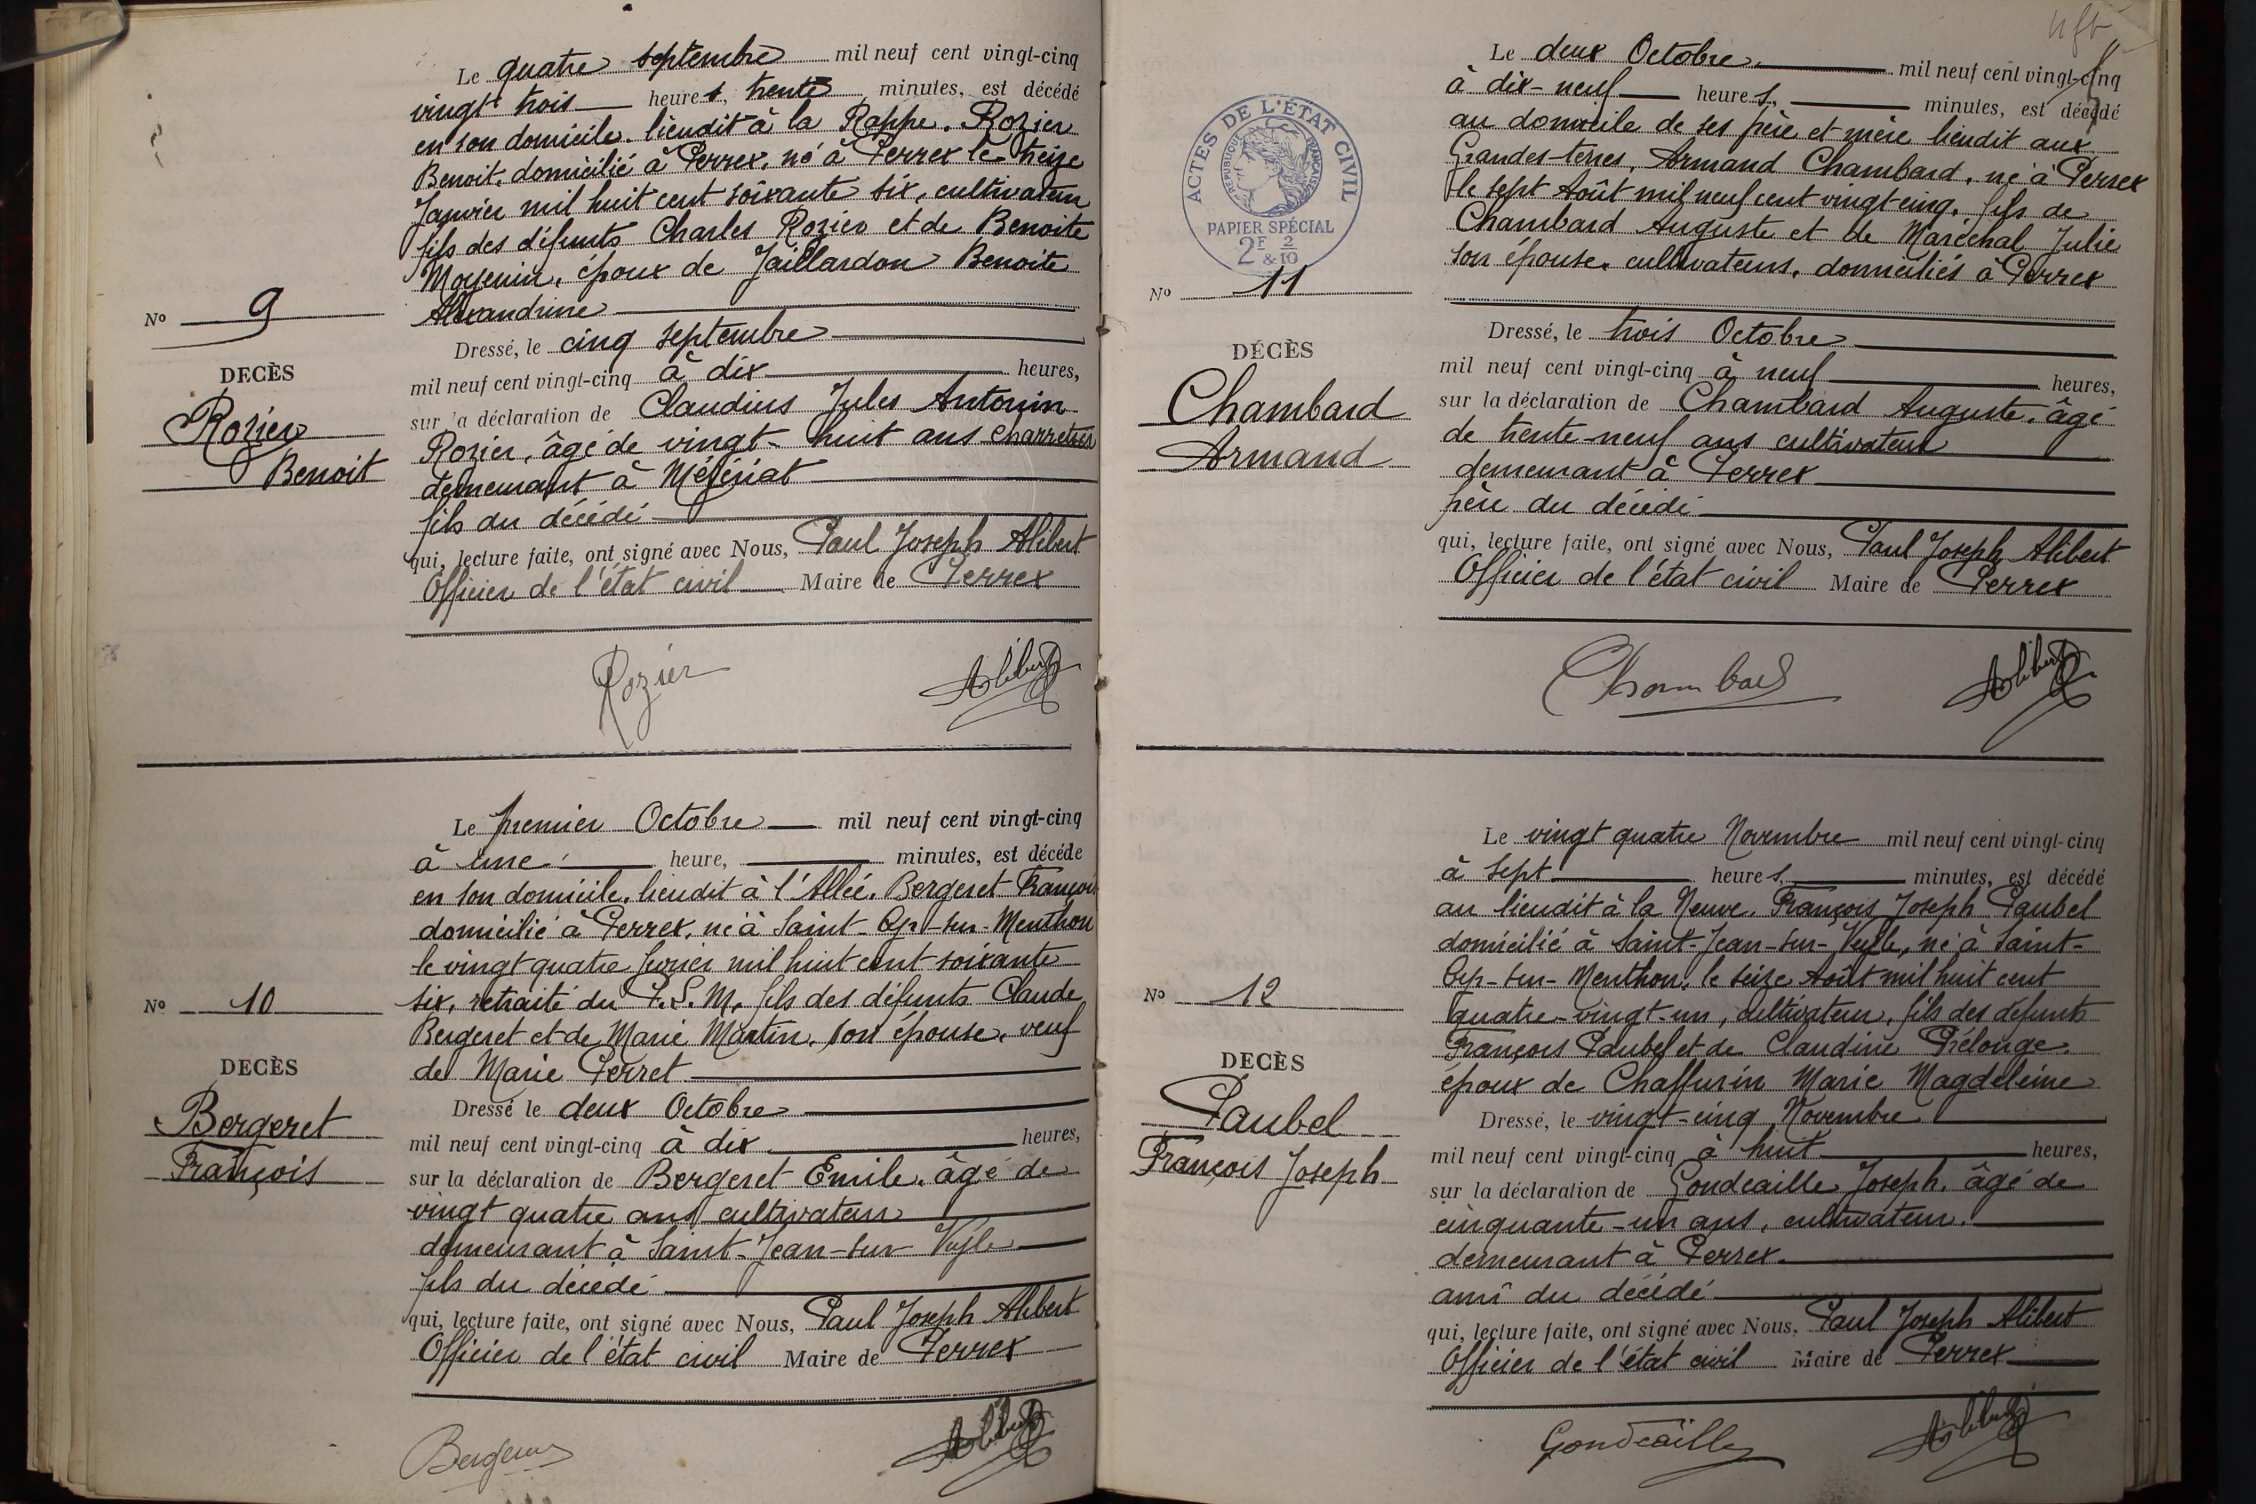 Le quatre septembre mil neuf cent vingt-cinq
vingt trois heures, trente minutes, est décédé
en son domicile, lieudit à la Rappe, Rozier
Benoit, domicilié à Perrex, né à Perrex le treize
Janvier mil huit cent soixante six, cultivateur
fils des défunts Charles Rozier et de Benoite
Moyemin, époux de Jaillardon Benoite
Alexandrine
No 9
DECÈS
Rozier
Benoit
Dressé, le cinq septembre
mil neuf cent vingt-cinq à dix heures,
sur la déclaration de Claudius Jules Antonin
Rozier, âgé de vingt-huit ans charretier
demeurant à Mézériat
fils du décédé
qui, lecture faite, ont signé avec Nous, Paul Joseph Alibert
Officier de l'état civil Maire de Perrex
Rozier Alibert
Le premier Octobre mil neuf cent vingt-cinq
à une heure, minutes, est décédé
en son domicile, lieudit à l'Allée, Bergeret François
domicilié à Perrex, né à Saint-Cyr-sur-Menthon
le vingt quatre février mil huit cent soixante
six, retraité du P.L.M, fils des défunts Claude
Bergeret et de Marie Martin, son épouse, veuf
de Marie Perret
No 10
DECÈS
Bergeret
François
Dressé le deux Octobre
mil neuf cent vingt-cinq à dix heures,
sur la déclaration de Bergeret Emile, âgé de
vingt quatre ans cultivateur
demeurant à Saint-Jean-sur Veyle
fils du décédé
qui, lecture faite, ont signé avec Nous, Paul Joseph Alibert
Officier de l'état civil Maire de Perrex
Bergeret Alibert
ACTES DE L'ÉTAT CIVIL
RÉPUBLIQUE FRANÇAISE
PAPIER SPÉCIAL
2F & 2/10
Le deux Octobre mil neuf cent vingt-cinq
à dix-neuf heures, minutes, est décédé
au domicile de ses père et mère lieudit aux
Grandes-terres, Armand Chambard, né à Perrex
le sept Août mil neuf cent vingt-cinq, fils de
Chambard Auguste et de Maréchal Julie
son épouse, cultivateurs, domiciliés à Perrex
No 11
DÉCÈS
Chambard
Armand
Dressé, le trois Octobre
mil neuf cent vingt-cinq à neuf heures,
sur la déclaration de Chambard Auguste, âgé
de trente-neuf ans cultivateur
demeurant à Perrex
père du décédé
qui, lecture faite, ont signé avec Nous, Paul Joseph Alibert
Officier de l'état civil Maire de Perrex
Chambard Alibert
Le vingt quatre Novembre mil neuf cent vingt-cinq
à sept heures, minutes, est décédé
au lieudit à la Neuve, François Joseph Paubel
domicilié à Saint-Jean-sur-Veyle, né à Saint-
Cyr-sur-Menthon, le seize Août mil huit cent
quatre-vingt-un, cultivateur, fils des défunts
François Paubel et de Claudine Prélonge,
époux de Chaffurin Marie Magdeleine
No 12
DECÈS
Paubel
François Joseph
Dressé, le vingt-cinq Novembre
mil neuf cent vingt-cinq à huit heures,
sur la déclaration de Gondcaille Joseph, âgé de
cinquante-un ans, cultivateur,
demeurant à Perrex.
ami du décédé
qui, lecture faite, ont signé avec Nous, Paul Joseph Alibert
Officier de l'état civil Maire de Perrex
Gondcaille Alibert